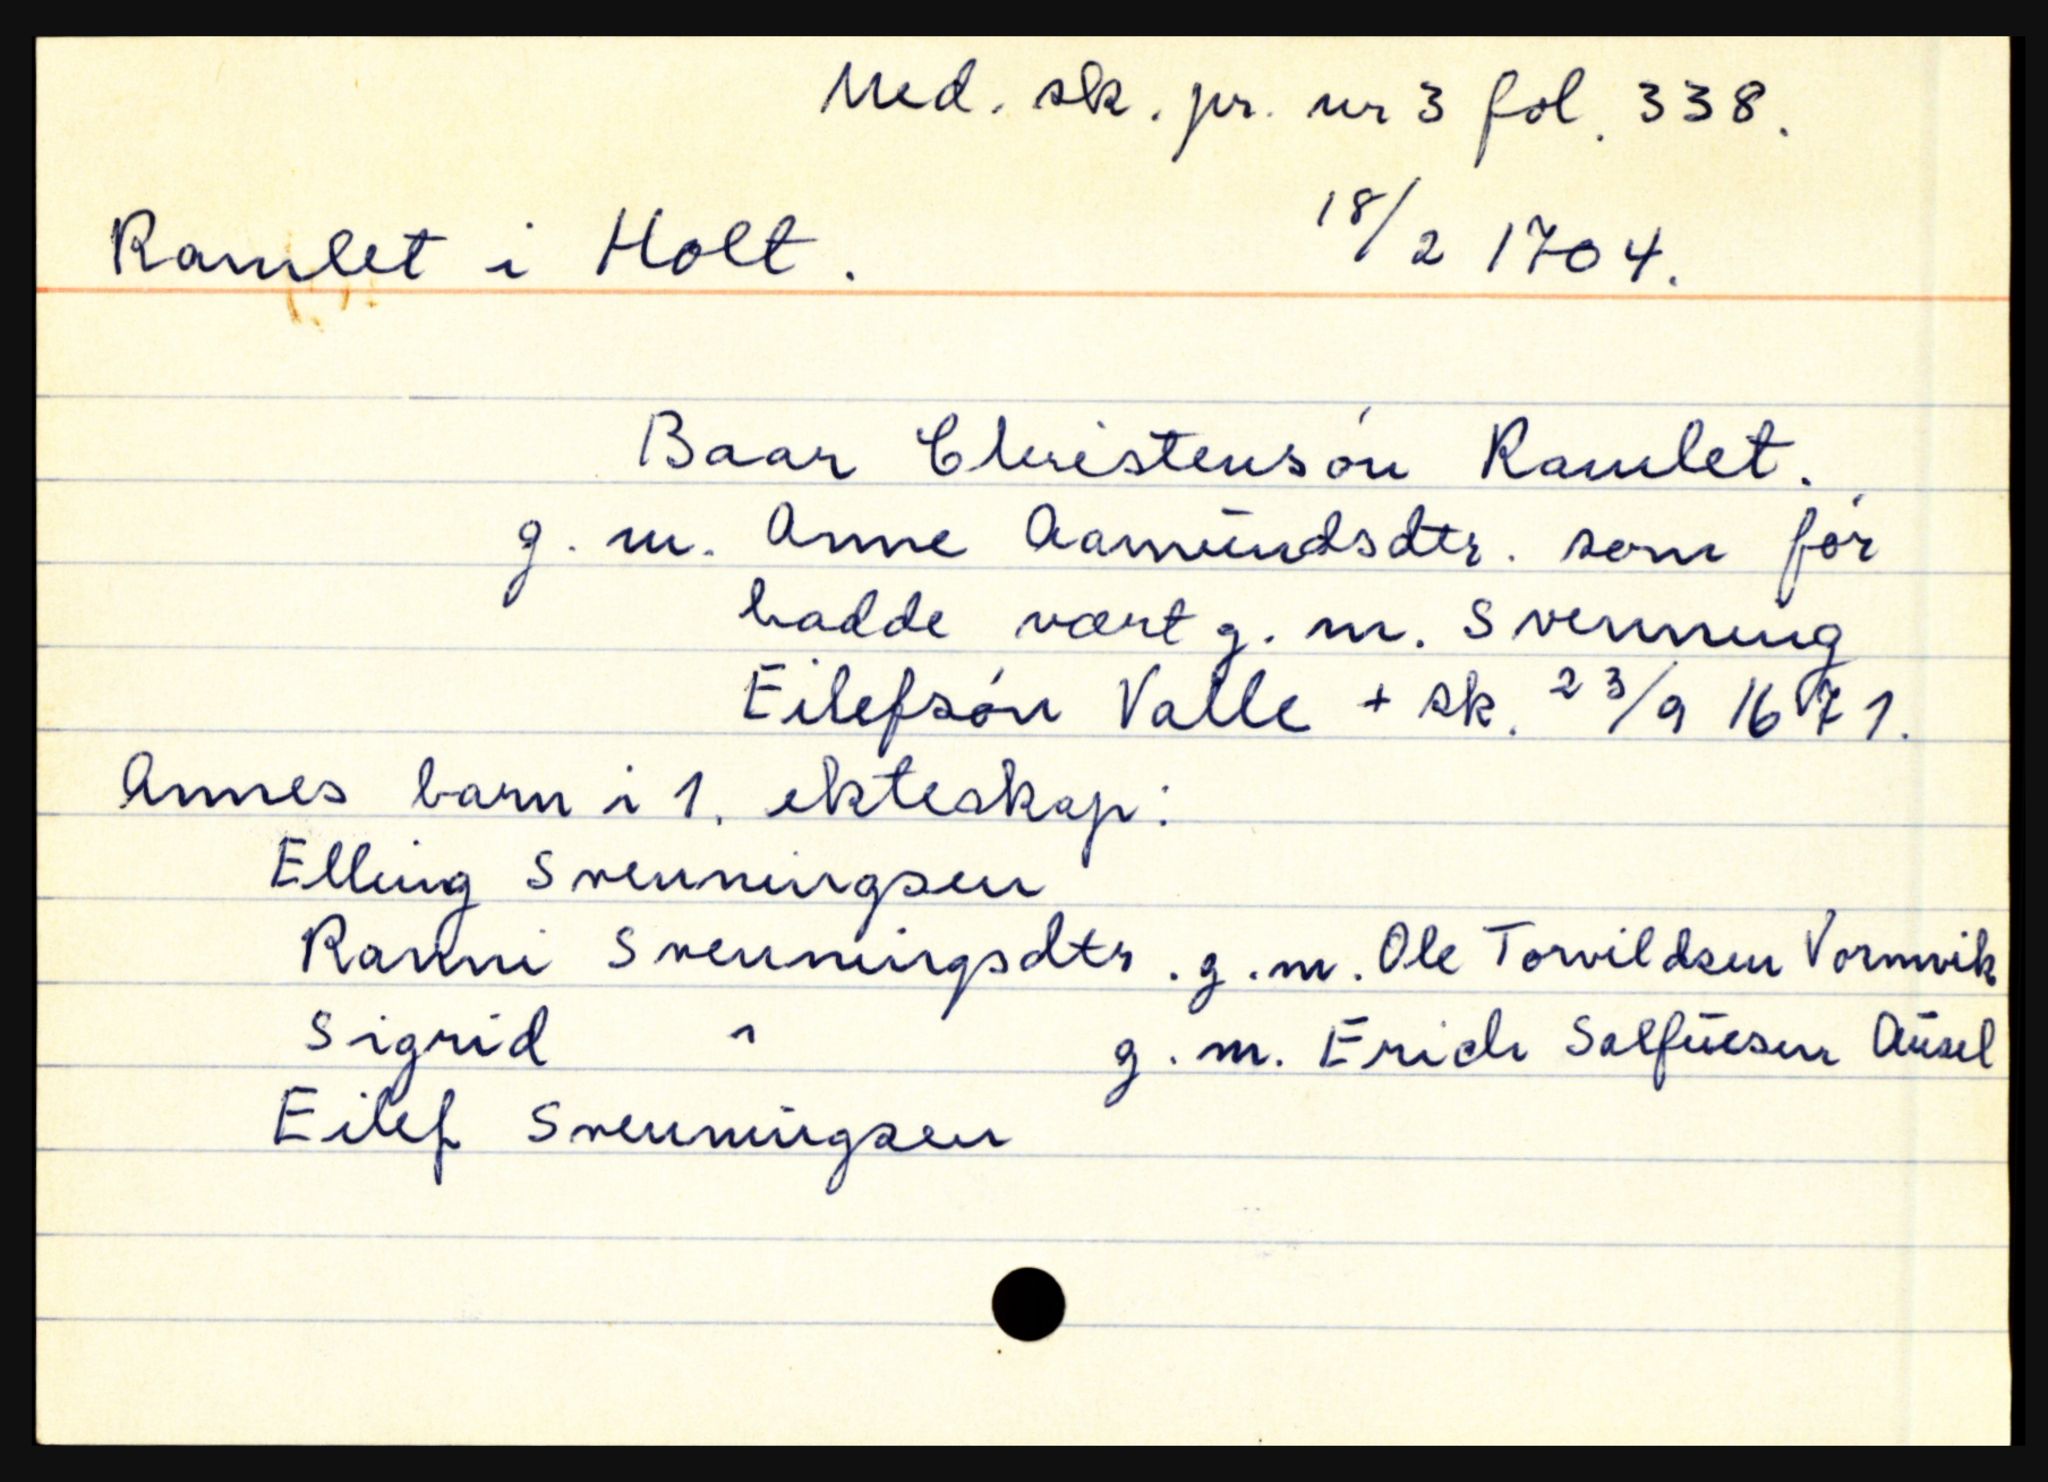 Ned. sk. pr. nr 3 fol. 338.
Ramlet i Holt. 18/2 1704.
Baar Christensón Ramlet.
g. m. Anne Aamūndsdtr. som fór
hadde vært g. m. Svenning
Eilefsón Valle + sk. 23/9 1671.
Annes barn i 1. ekteskap:
Elling Svenningsen
Ranni Svenningsdtr. g. m. Ole Torvildsen Vormvik
Sigrid " g. m. Erich Salfūesen Aūsel
Eilef Svenningsen